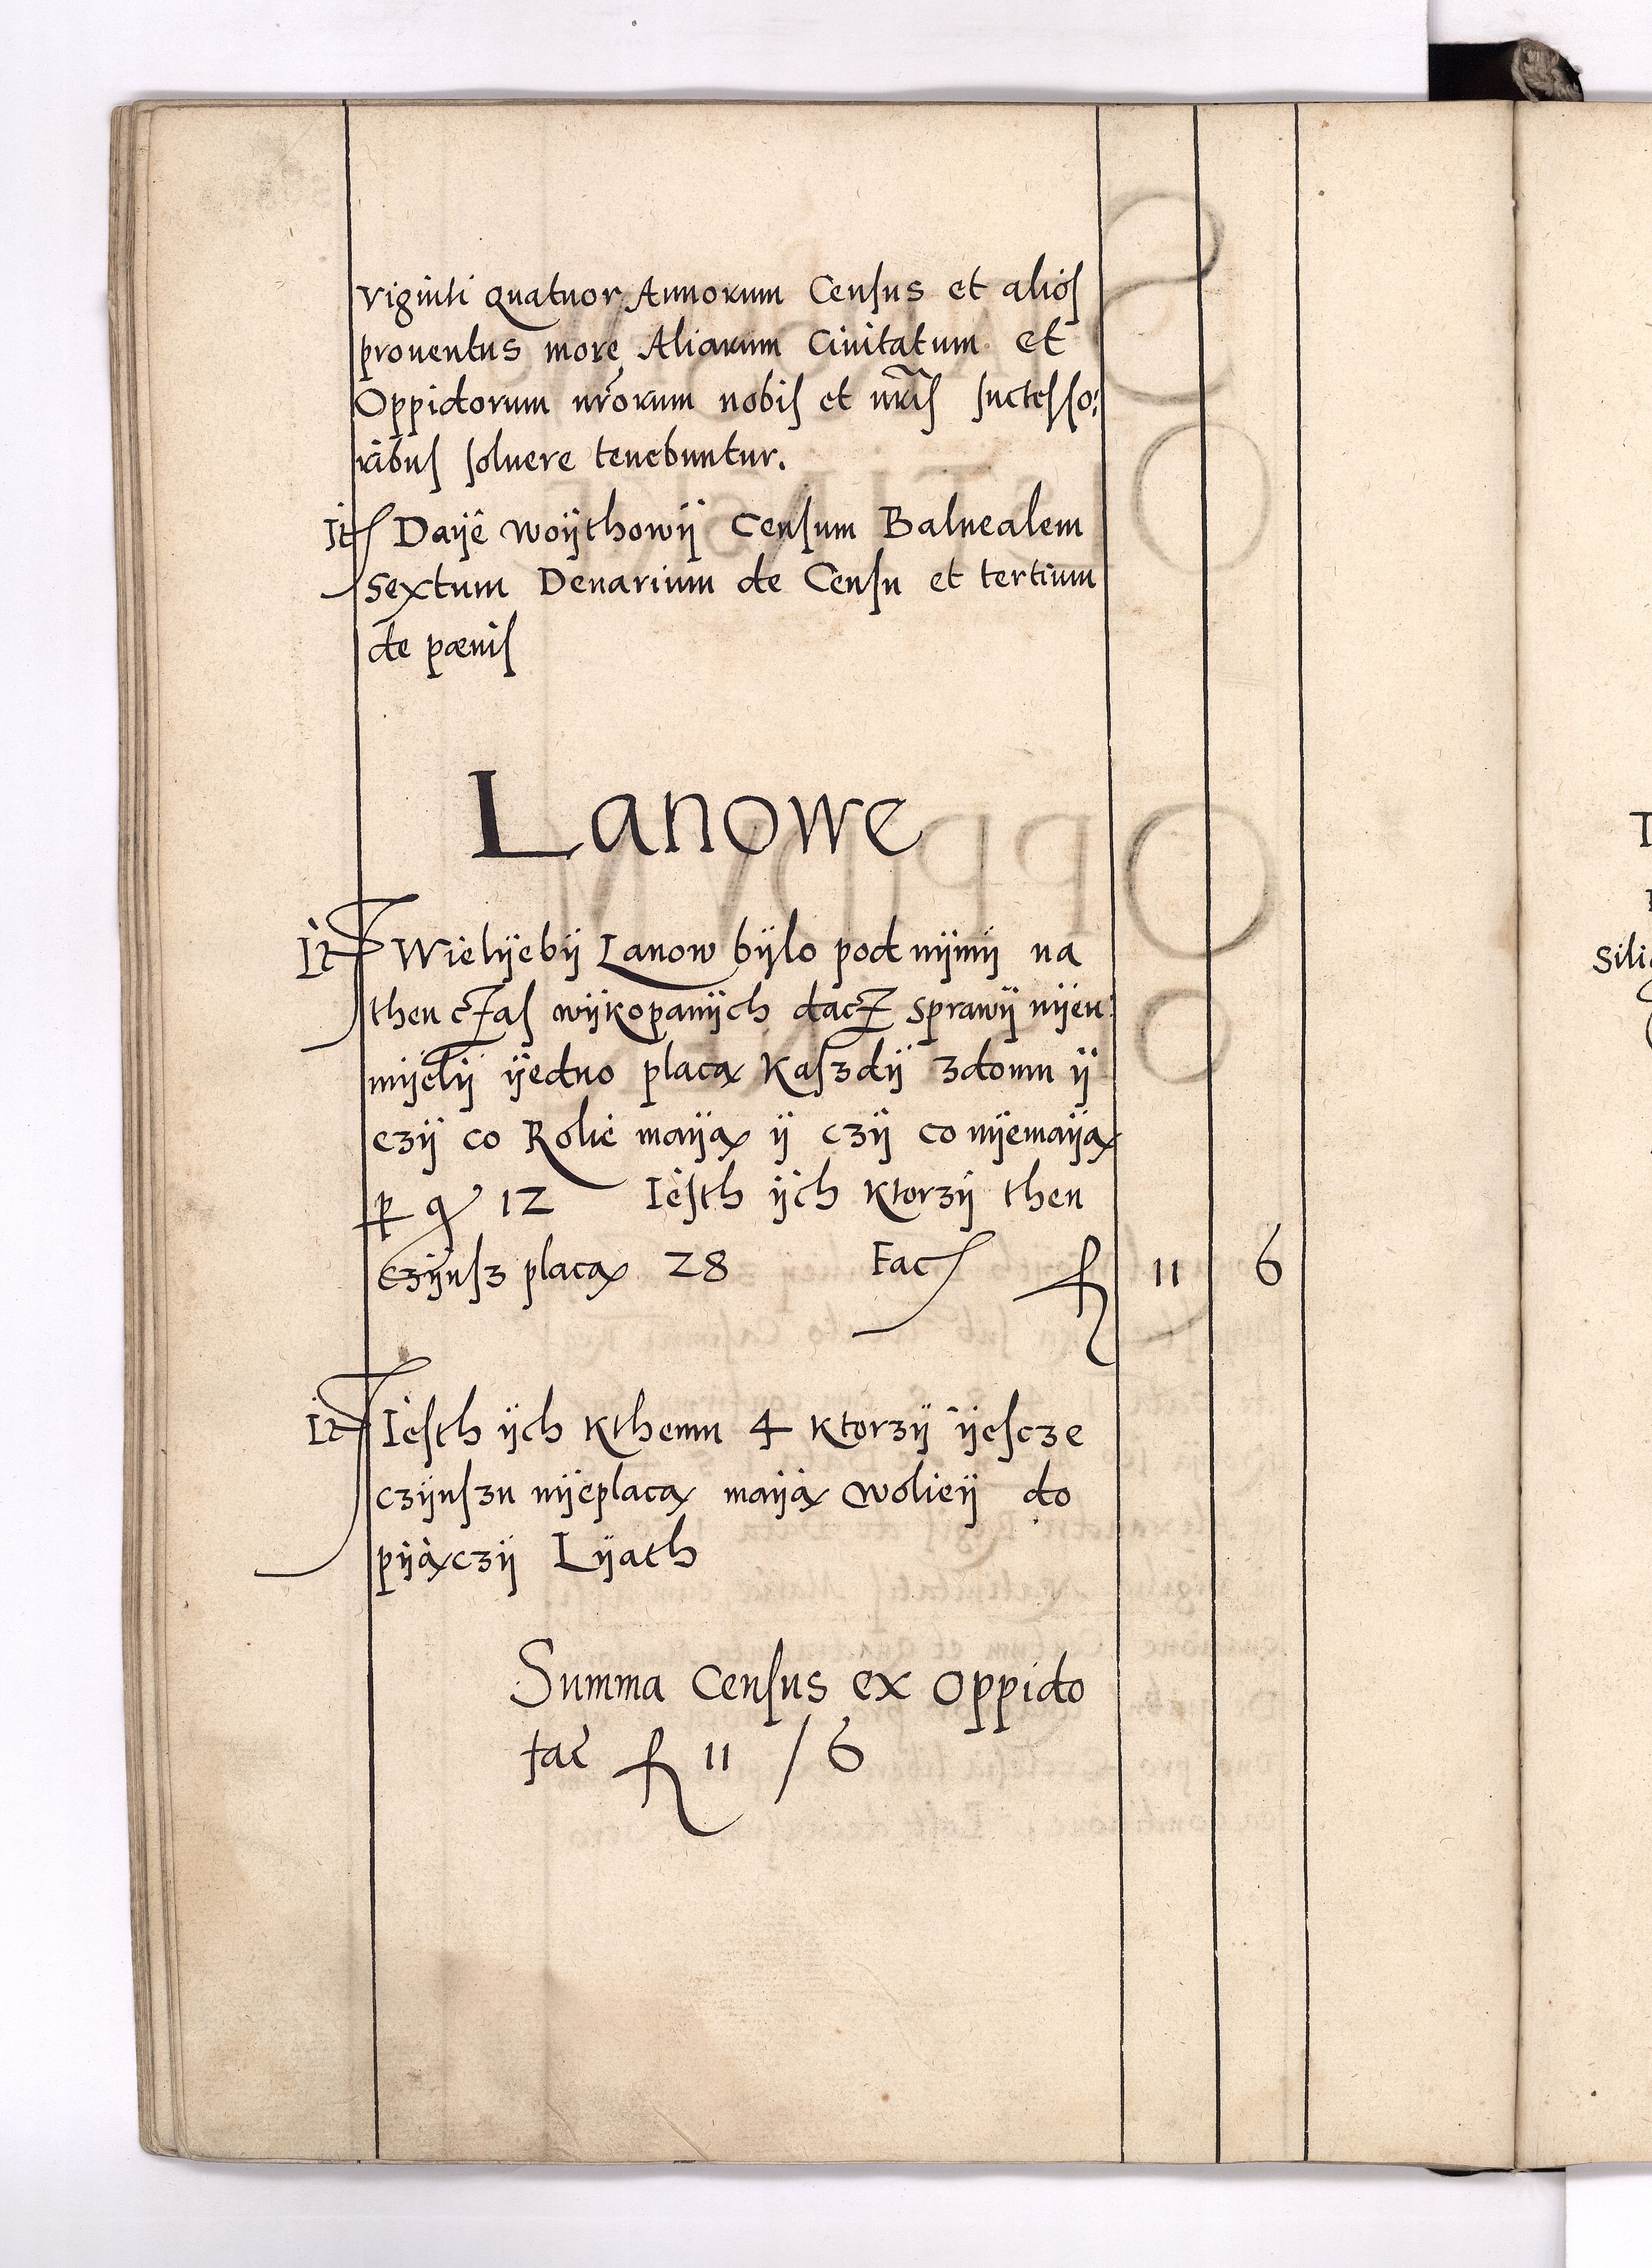 viginti quatuor Annorum Censuſ et alioſ
prouentus more Aliarum Ciuitatum et
Oppidorum nr̃orum nobiſ et nr̃iſ ſucceſſo:
ribuſ ſoluere tenebuntur.
It Dayê woÿthowÿ Cenſum Balnealem
Sextum Denarium de Cenſu et tertium
de pœniſ
Lanowe
It Wielÿebÿ Lanow bÿlo pod nÿmÿ na
then cżaſ wÿkopanÿch dacż sprawÿ nÿeu:
mÿelÿ ÿedno placą Kaſzdÿ zdomu ÿ
czÿ co Rolie maÿą ÿ czÿ co nÿemaÿą
p gͬ 12 Ieſth ÿch ktorzÿ then
Czÿnſz placą 28 Fac f 11 6
It Ieſth ÿch kthemu 4 ktorzÿ ÿeſcze
czÿnſzu nÿeplacą maÿą wolieÿ do
pÿączÿ Lÿath
Summa Cenſus ex oppido
fac̃ f 11 / 6